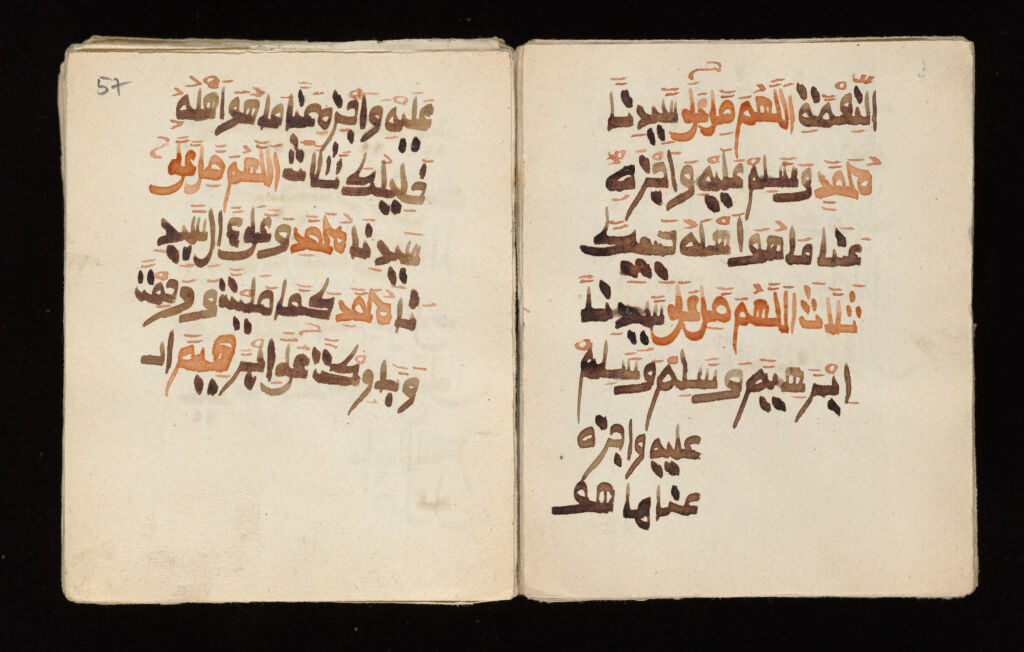 النعمة اللهم صل على سيدنا
محمد وسلم عليه واجزه
عنا ما هو اهله حبيبك
ثلاث اللهم صل على سيدنا
ابرهيم وسلم وسلم
عليه واجزه
عنا ما هو
57
عليه واجزه عنا ما هو اهله
خليلك ثلاث اللهم صل على
سيدنا محمد وعلى ءال سيد
نا محمد كما صليت ورحمت
وباركت على ابرهيم